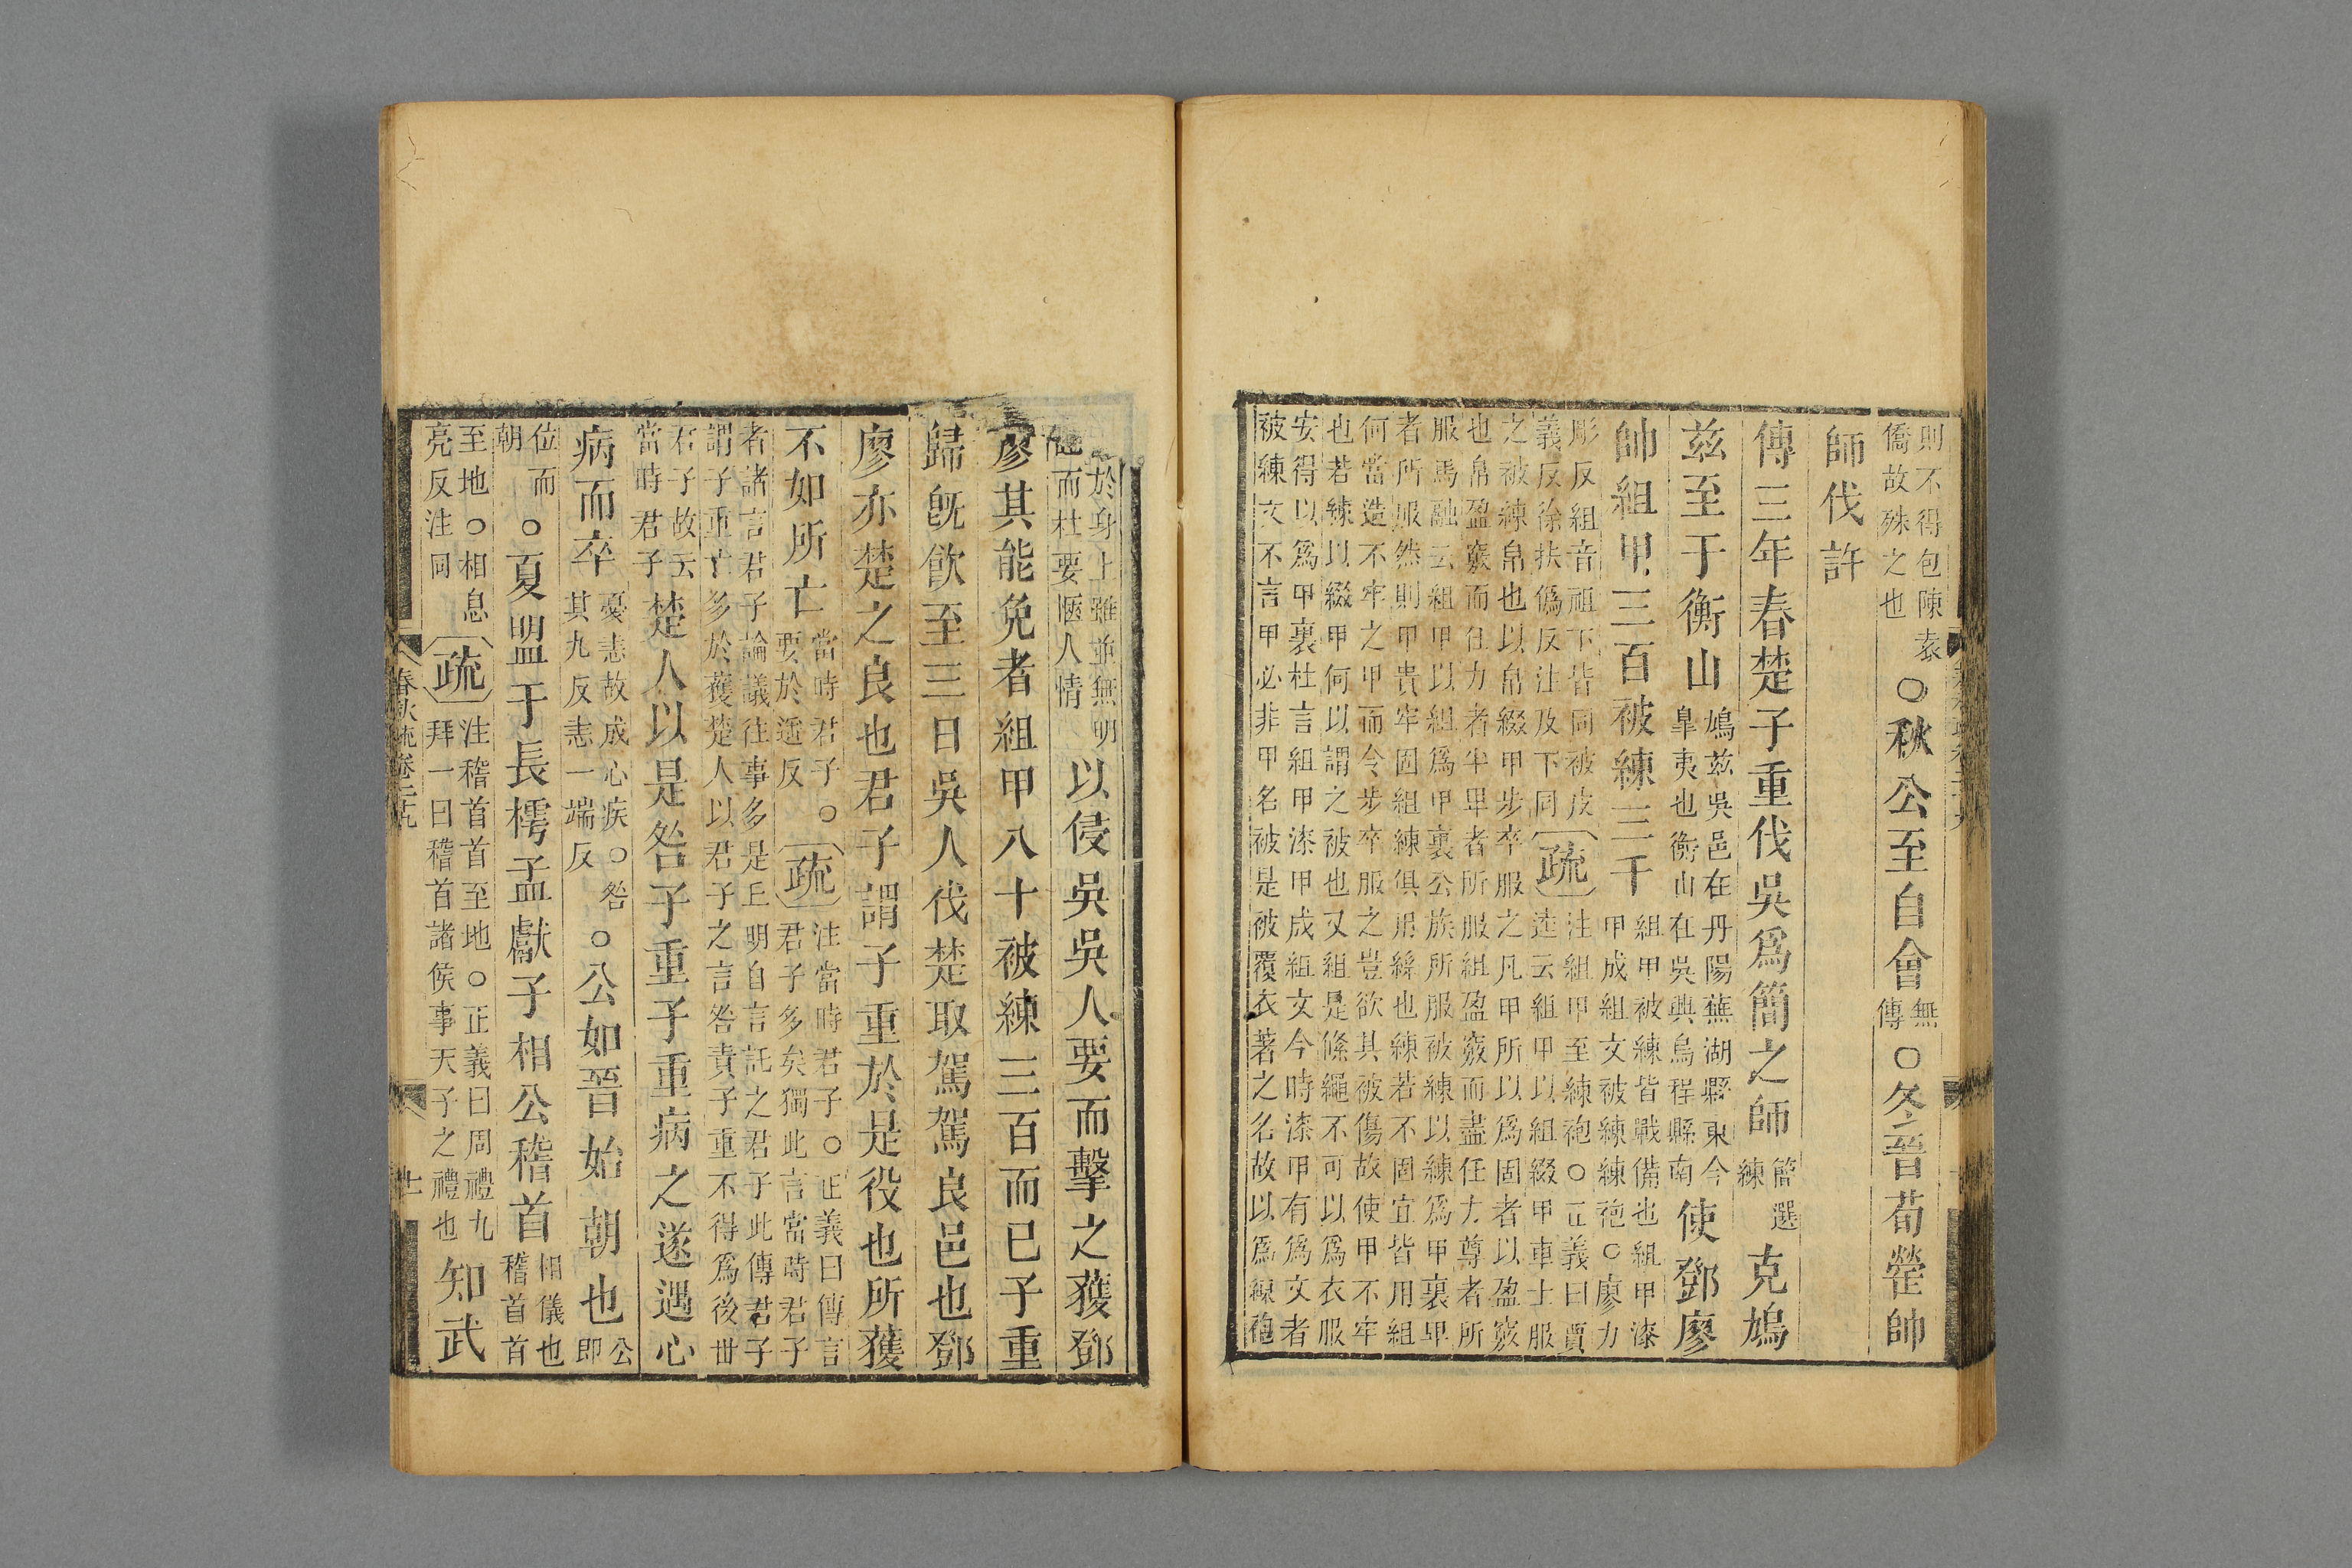 則不得包陳袁
僑故殊之也
○秋公至自會
無
傳
○冬晉荀罃帥
師伐許
傳三年春楚子重伐吳爲簡之師
簡選
練
克鳩
茲至于衡山
鳩茲吳邑在丹陽蕪湖縣東今
皐夷也衡山在吳興烏程縣南
使鄧廖
帥組甲三百被練三千
組甲被練皆戰備也組甲漆
甲成組文被練練袍○廖力
彫反組音祖下皆同被皮
義反徐扶僞反注及下同
疏
注組甲至練袍○正義曰賈
逵云組甲以組綴甲車士服
之被練帛也以帛綴甲步卒服之凡甲所以爲固者以盈竅
也帛盈竅而任力者半卑者所服組盈竅而盡任力尊者所
服馬融云組甲以組爲甲裏公族所服被練以練爲甲裏卑
者所服然則甲貴牢固組練俱用絲也練若不固宜皆用組
何當造不牢之甲而令步卒服之豈欲其被傷故使甲不牢
也若練以綴甲何以謂之被也又組是絛繩不可以爲衣服
安得以爲甲裏杜言組甲漆甲成組文今時漆甲有爲文者
被練文不言甲必非甲名被是被覆衣著之名故以爲練袍
於身上雖並無明
而杜要愜人情
以侵吳吳人要而擊之獲鄧
廖其能免者組甲八十被練三百而已子重
歸既飮至三日吳人伐楚取駕駕良邑也鄧
廖亦楚之良也君子謂子重於是役也所獲
不如所亡
當時君子○
要於遥反
疏
注當時君子○正義曰傳言
君子多矣獨此言當時君子
者諸言君子論議往事多是丘明自言託之君子此傳君子
謂子重亡多於獲楚人以君子之言咎責子重不得爲後世
君子故云
當時君子
楚人以是咎子重子重病之遂遇心
病而卒
憂恚故成心疾○咎
其九反恚一端反
○公如晉始朝也
公
即
位而
朝
○夏盟于長樗孟獻子相公稽首
相儀也
稽首首
至地○相息
亮反注同
疏
注稽首首至地○正義曰周禮九
拜一曰稽首諸侯事天子之禮也
知武
春秋疏卷二十九
十一